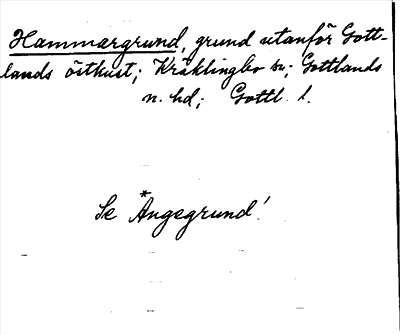 Hammargrund, grund utanför Gott-
lands östkust; Kräklingbo sn; Gottlands
n. hd; Gottl. l.
Se *Ångegrund!